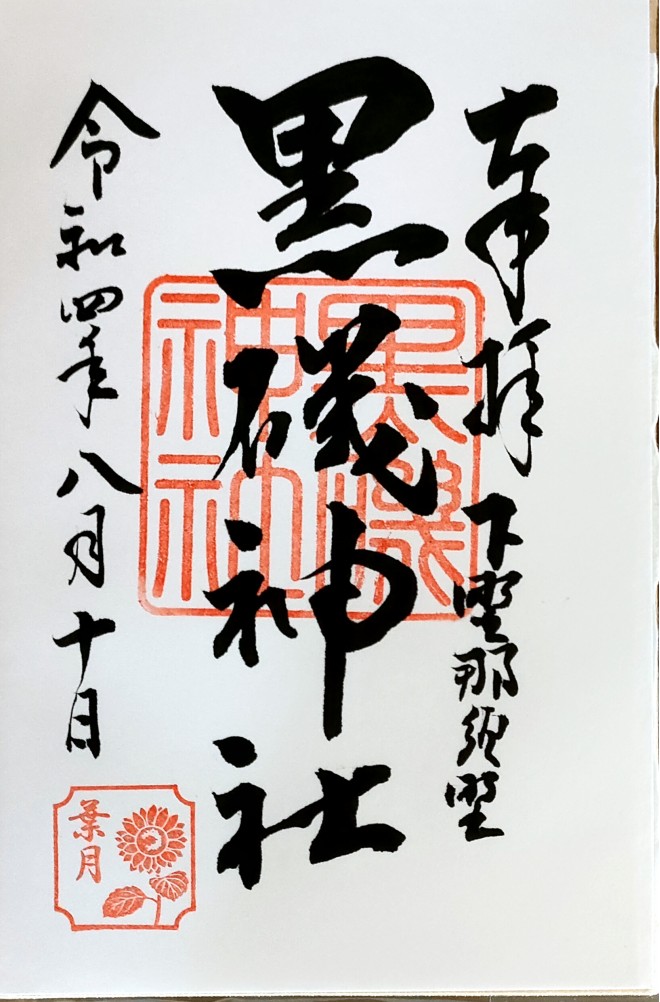 奉拝 下野那須野
黒磯神社
黒磯神社
令和四年八月十日
葉月